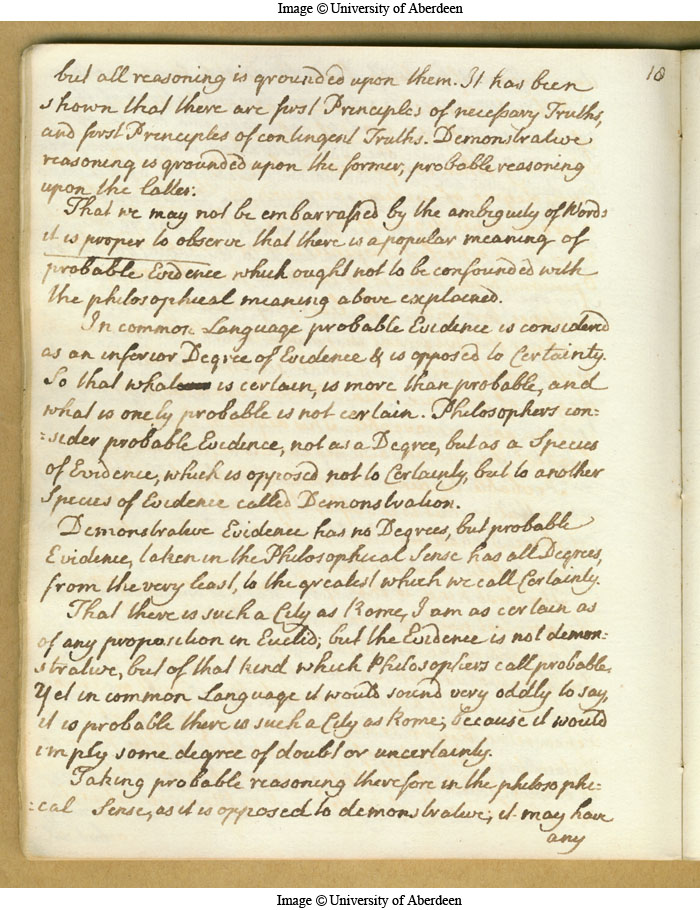 Image © University of Aberdeen
18
but all reasoning is grounded upon them. It has been
shown that there are first Principles of necessary Truths,
and first Principles of contingent Truths. Demonstrative
reasoning is grounded upon the former, probable reasoning
upon the latter.
That we may not be embarrassed by the ambiguity of Words
it is proper to observe that there is a popular meaning of
probable Evidence which ought not to be confounded with
the philosophical meaning above explained.
In common Language probable Evidence is considered
as an inferior Degree of Evidence & is opposed to Certainty.
So that what is certain, is more than probable, and
what is onely probable is not certain. Philosophers con=
=sider probable Evidence, not as a Degree, but as a Species
of Evidence, which is opposed not to Certainty, but to another
Species of Evidence called Demonstration.
Demonstrative Evidence has no Degrees, but probable
Evidence, taken in the Philosophical Sense has all Degrees,
from the very least, to the greatest which we call Certainty.
That there is such a City as Rome, I am as certain as
of any proposition in Euclid; but the Evidence is not demon=
strative, but of that kind which Philosophers call probable.
Yet in common Language it would sound very oddly to say,
it is probable there is such a City as Rome; because it would
imply some degree of doubt or uncertainty.
Taking probable reasoning therefore in the philosophi=
=cal Sense, as it is opposed to demonstrative; it may have
any
Image © University of Aberdeen